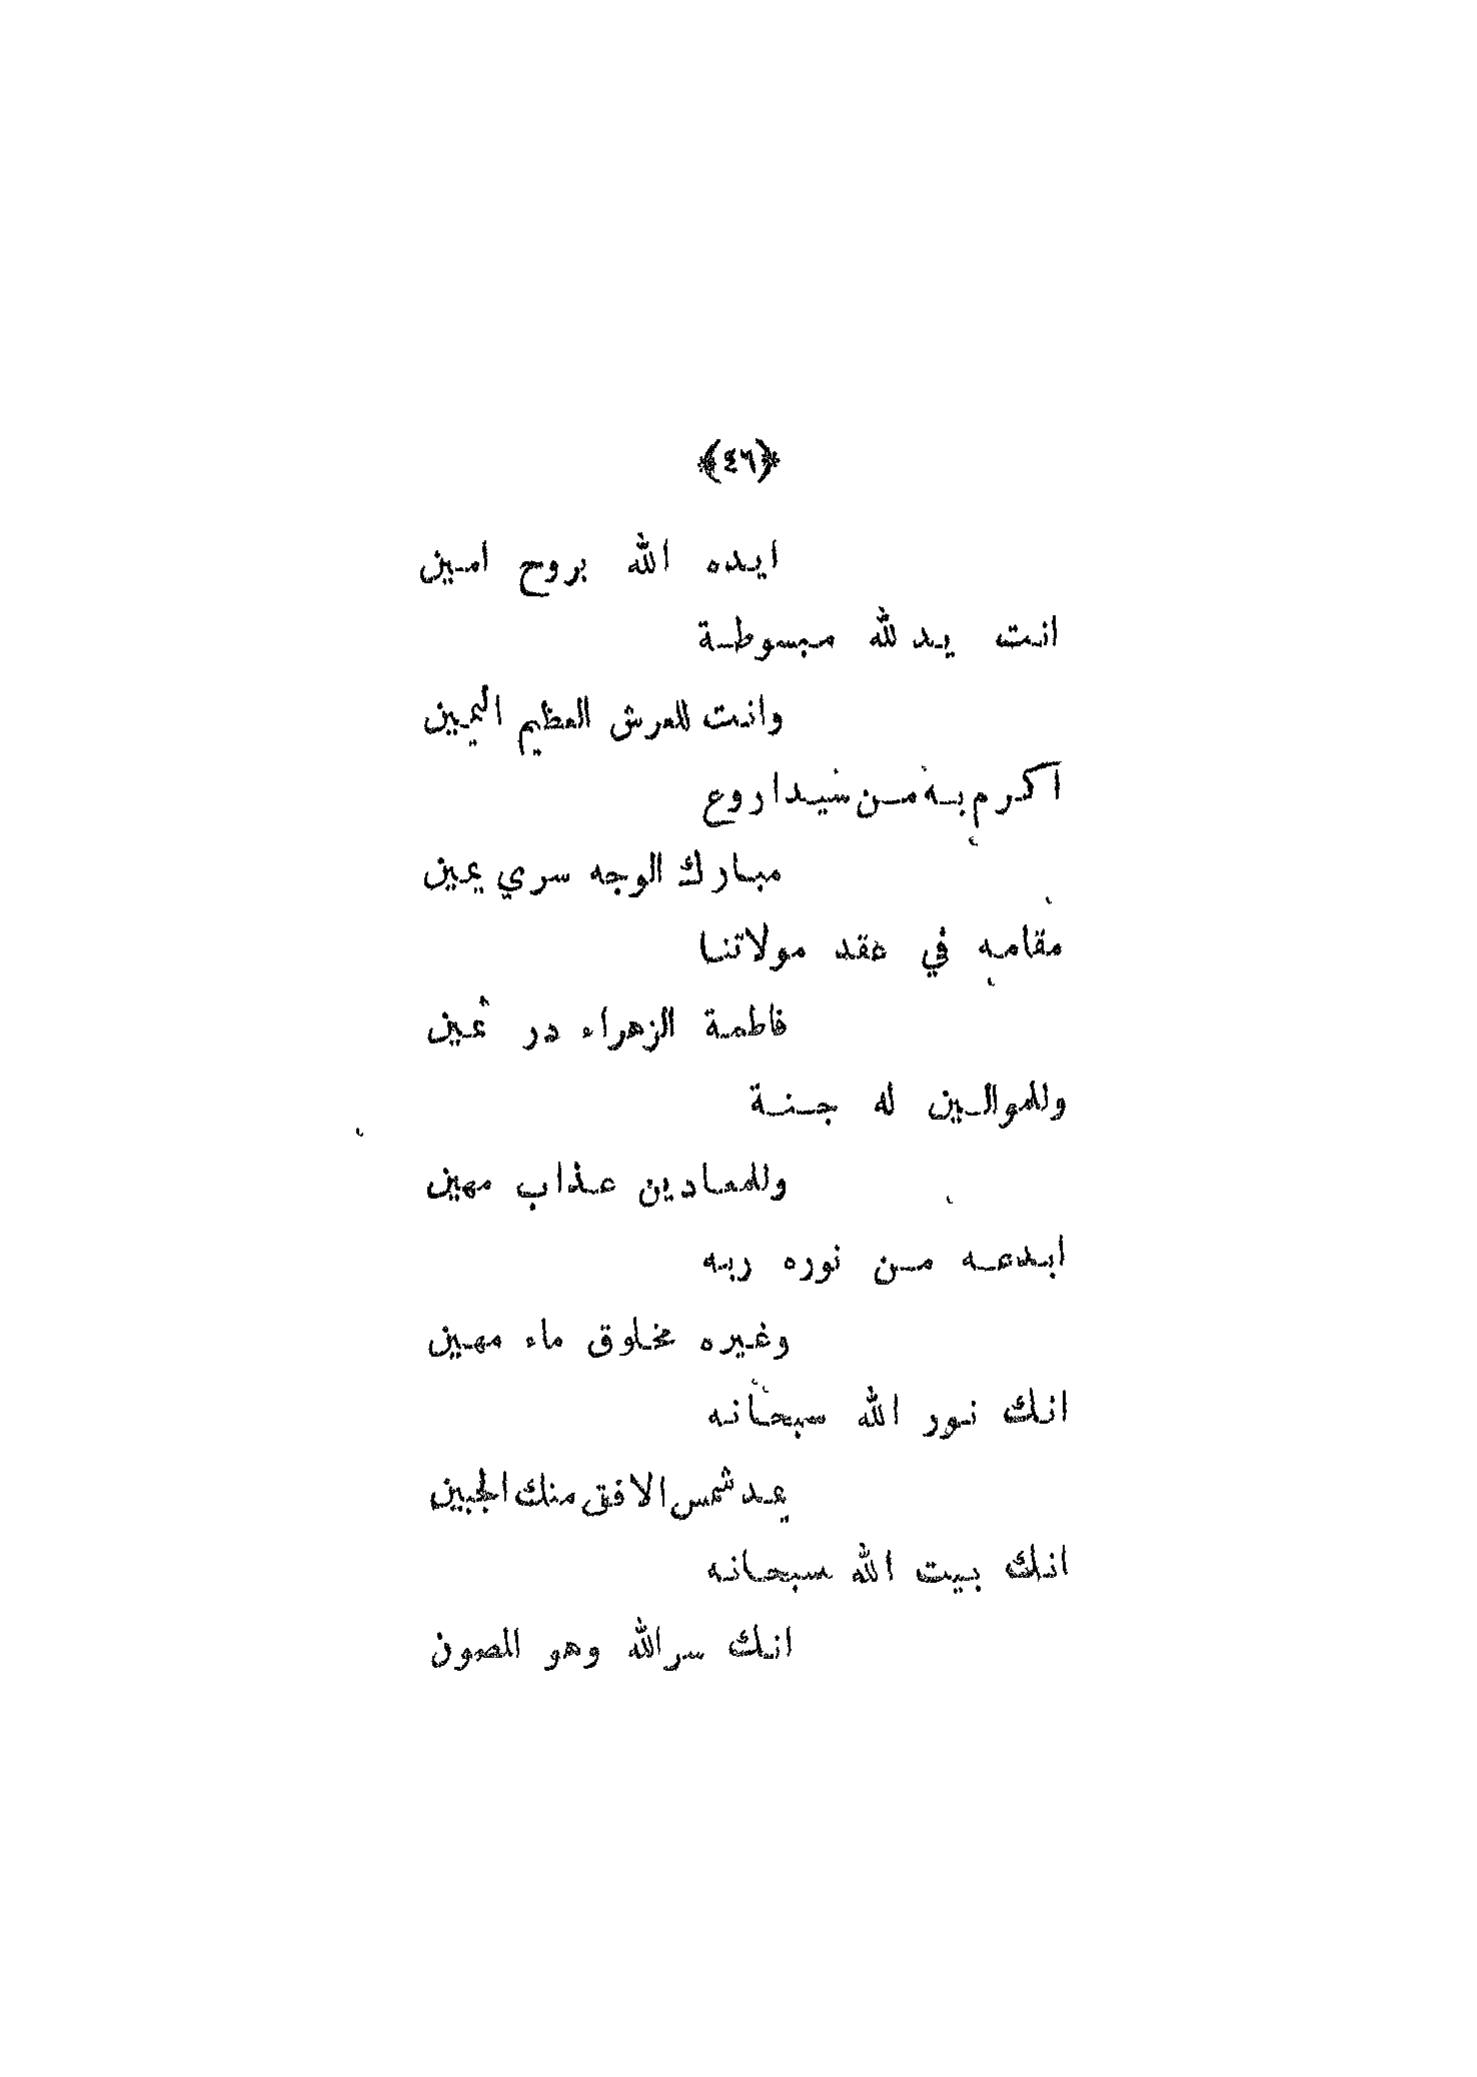 ﴿٤٦﴾
ايده الله بروح امين
انت يد لله مبسوطة
وانت للعرش العظيم اليمين
اكرم به من سيد اروع
مبارك الوجه سري يمين
مقامه في عقد مولاتنا
فاطمة الزهراء در ثمين
وللموالين له جنة
وللمعادين عذاب مهين
ابدعه من نوره ربه
وغيره مخلوق ماء مهين
انك نور الله سبحانه
يمد شمس الافق منك الجبين
انك بيت الله سبحانه
انك سر الله وهو المصون